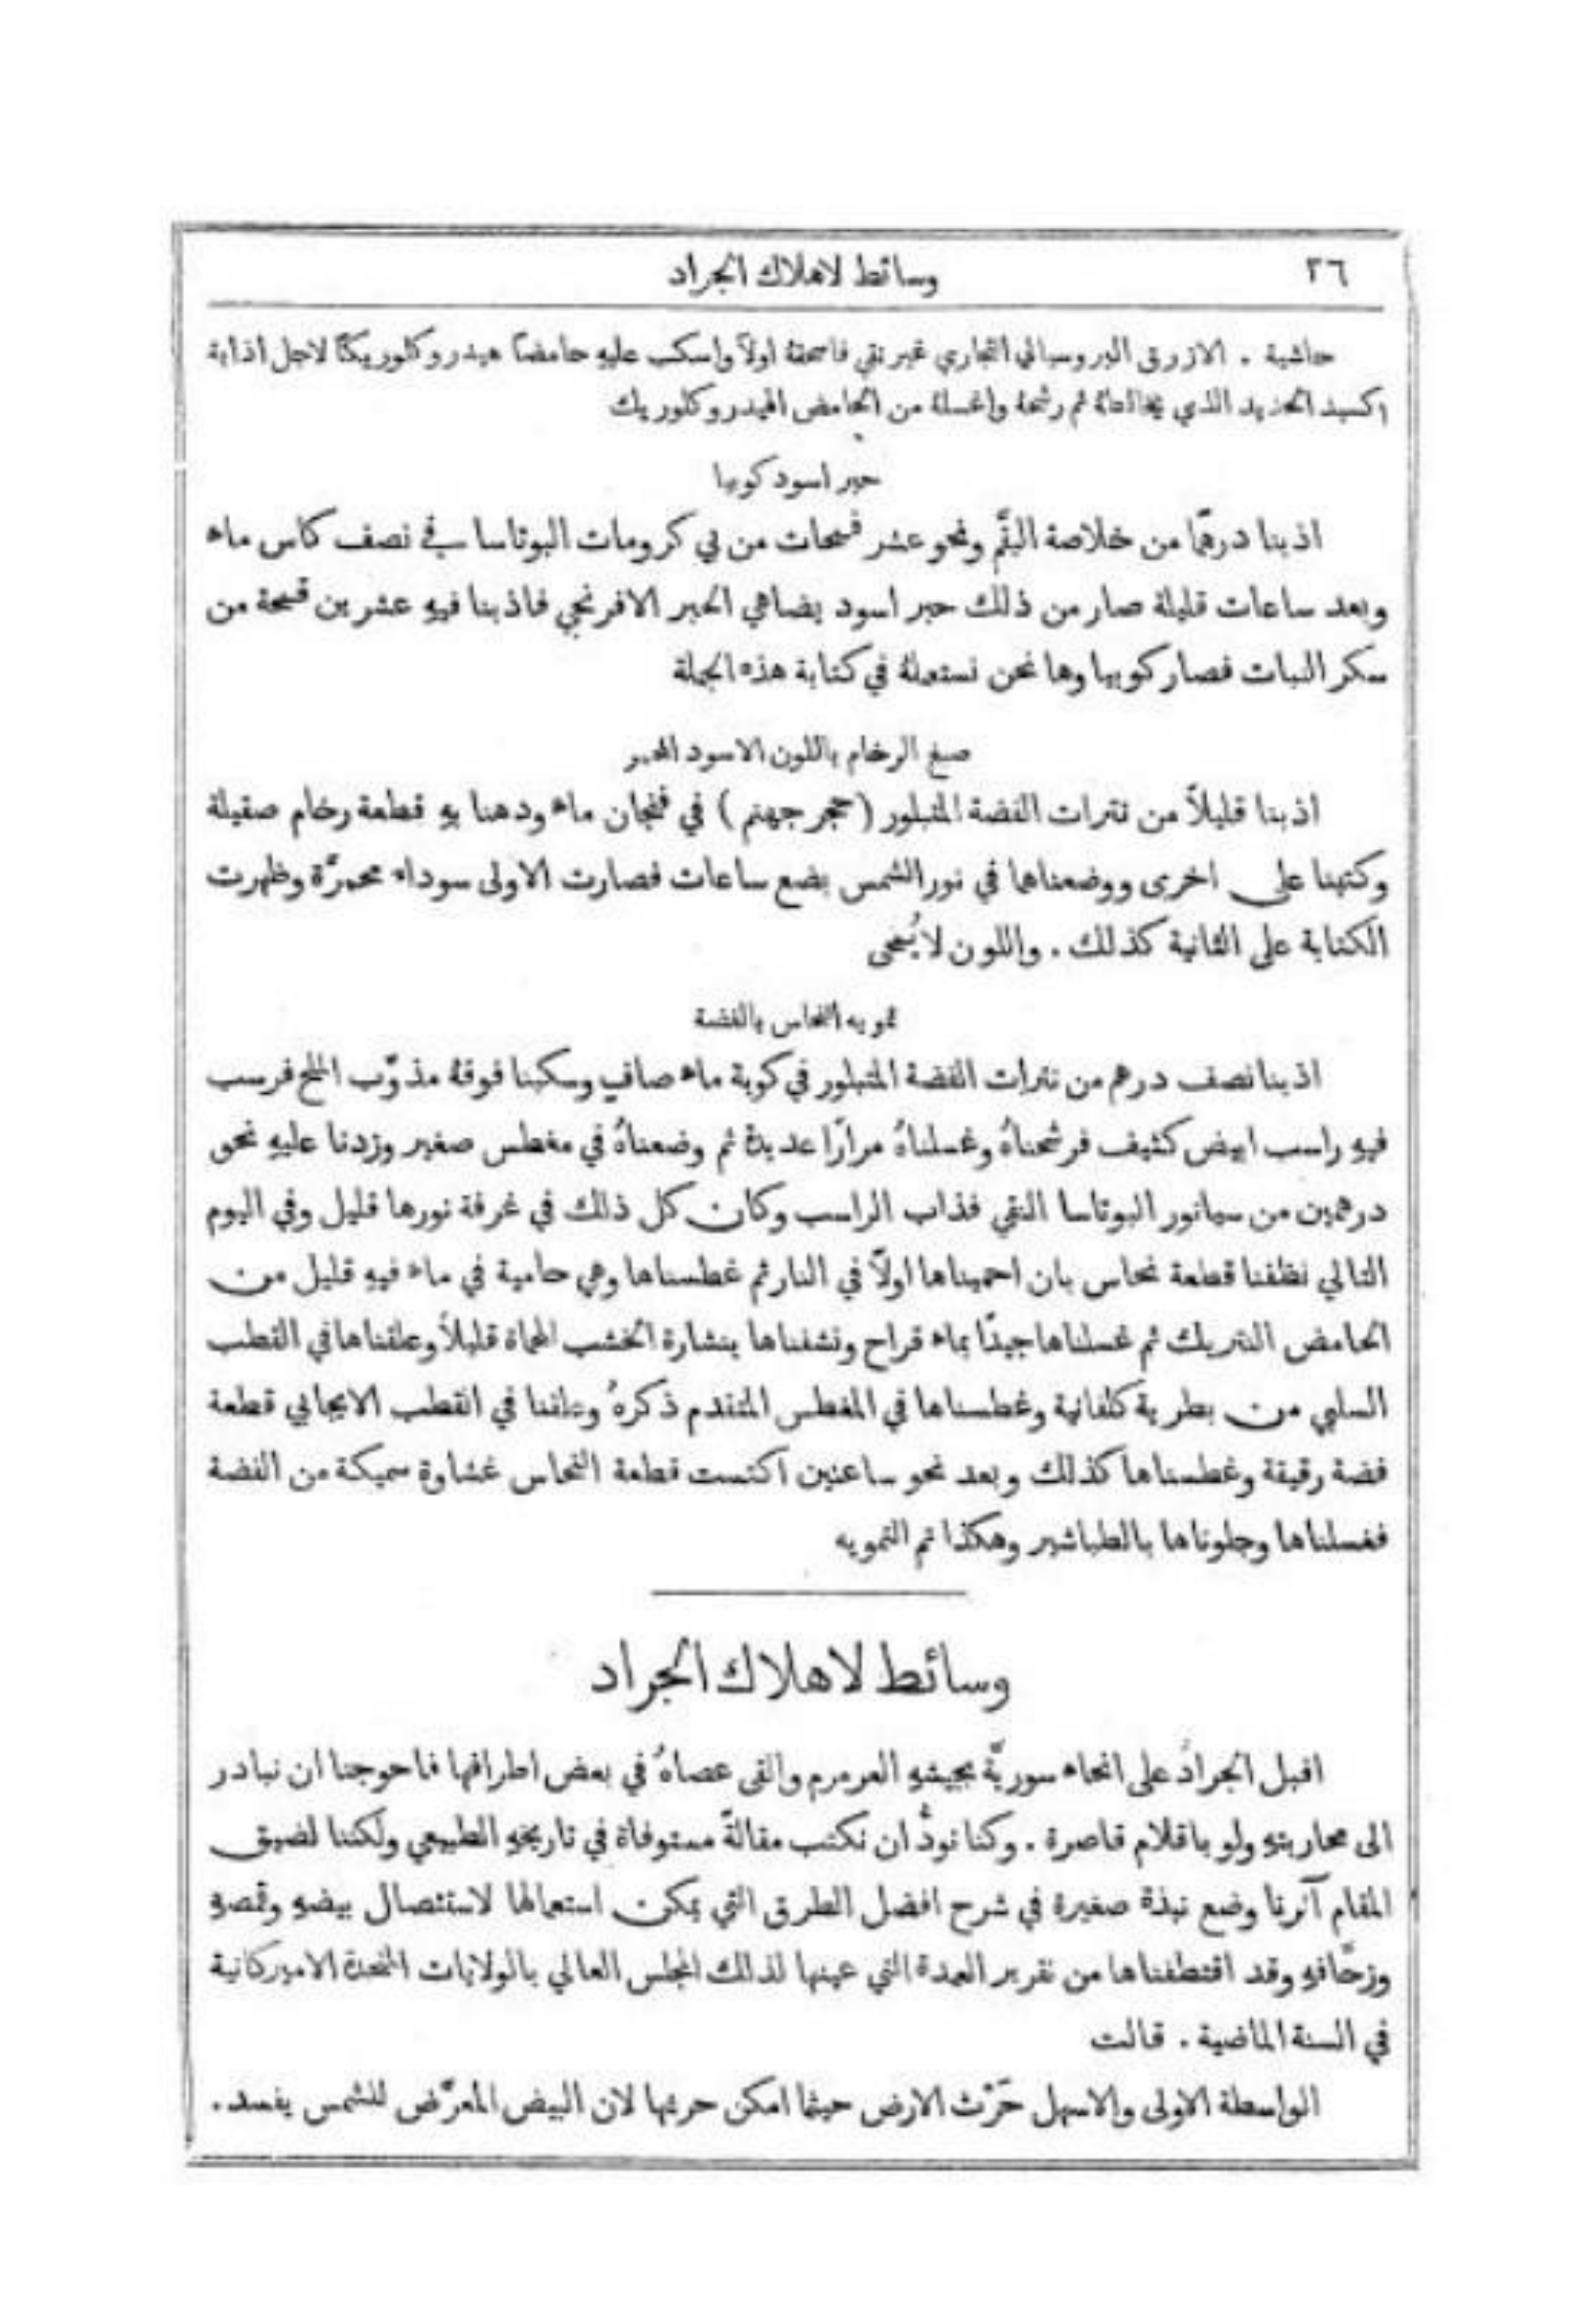 ٢٦
وسائط لاهلاك الجراد
حاشية . الازرق البروسياني التجاري غير نقي فاسحقهُ اولاً واسكب عليهِ حامضًا هيدروكلوريكًا لاجل اذابة
اكسيد الحديد الذي يخالطهُ ثم رشحهُ واغسلهُ من الحامض الهيدروكلوريك
حبر اسود كوبيا
اذبنا درهمًا من خلاصة البقّم ونحو عشر قمحات من بي كرومات البوتاسا في نصف كاس ماء
وبعد ساعات قليلة صار من ذلك حبر اسود يضاهي الحبر الافرنجي فاذبنا فيهِ عشرين قمحة من
سكر النبات فصار كوبيا وها نحن نستعملهُ في كتابة هذه الجملة
صبغ الرخام باللون الاسود المحمر
اذبنا قليلاً من نترات الفضة المتبلور (حجر جهنم) في فنجان ماء ودهنا بهِ قطعة رخام صقيلة
وكتبنا على اخرى ووضعناها في نور الشمس بضع ساعات فصارت الاولى سوداء محمرَّة وظهرت
الكتابة على الثانية كذلك . واللون لا يُمحى
تمويه النحاس بالفضة
اذبنا نصف درهم من نترات الفضة المتبلور في كوبة ماء صافٍ وسكبنا فوقهُ مذوَّب الملح فرسب
فيهِ راسب ابيض كثيف فرشحناهُ وغسلناهُ مرارًا عديدة ثم وضعناهُ في مغطس صغير وزدنا عليهِ نحو
درهمين من سيانور البوتاسا النقي فذاب الراسب وكان كل ذلك في غرفة نورها قليل وفي اليوم
التالي نظفنا قطعة نحاس بان احميناها اولاً في النار ثم غطسناها وهي حامية في ماء فيهِ قليل من
الحامض النتريك ثم غسلناها جيدًا بماء قراح ونشفناها بنشارة الخشب المحماة قليلاً وعلقناها في القطب
السلبي من بطرية كلفانية وغطسناها في المغطس المتقدم ذكرهُ وعلقنا في القطب الايجابي قطعة
فضة رقيقة وغطسناها كذلك وبعد نحو ساعتين اكتست قطعة النحاس غشاوة سميكة من الفضة
فغسلناها وجلوناها بالطباشير وهكذا تم التمويه
وسائط لاهلاك الجراد
اقبل الجرادُ على انحاء سوريَّة بجيشهِ العرمرم والقى عصاهُ في بعض اطرافها فاحوجنا ان نبادر
الى محاربتهِ ولو باقلام قاصرة . وكنا نودُّ ان نكتب مقالةً مستوفاة في تاريخهِ الطبيعي ولكننا لضيق
المقام آثرنا وضع نبذة صغيرة في شرح افضل الطرق التي يمكن استعمالها لاستئصال بيضهِ وقمصهِ
وزحَّافهِ وقد اقتطفناها من تقرير العمدة التي عينها لذلك المجلس العالي بالولايات المتحدة الاميركانية
في السنة الماضية . قالت
الواسطة الاولى والاسهل حَرْث الارض حيثما امكن حرثها لان البيض المعرَّض للشمس يفسد .